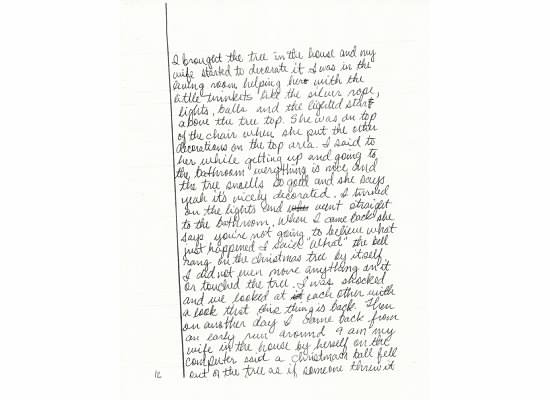 I brought the tree in the house and my
wife started to decorate it. I was in the
living room helping her with the
little trinkets like the silver rope,
lights, balls and the lighted star
above the tree top. She was on top
of the chair when she put the other
decorations on the top area. I said to
her while getting up and going to
the bathroom everything is nice and
the tree smells so good and she says
yeah its nicely decorated. I turned
on the lights and went straight
to the bathroom. When I came back she
says you're not going to believe what
just happened I said "What" the bell
rang on the christmas tree by itself.
I did not even move anything on it
or touched the tree. I was shocked
and we looked at each other with
a look that this thing is back. Then
on another day I came back from
an early run around 9 am my
wife in the house by herself on the
computer said a christmas ball fell
out of the tree as if someone threw it
12